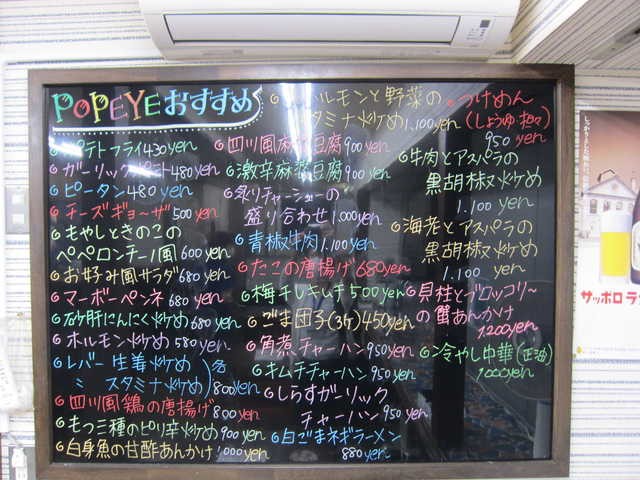 POPEYE おすすめ
ポテトフライ 430 yen
ガーリックポテト 480 yen
ピータン 480 yen
チーズギョーザ 500 yen
もやしときのこの
ペペロンチーノ風 600 yen
お好み風サラダ 680 yen
マーボーペンネ 680 yen
砂肝にんにく炒め 680 yen
ホルモン炒め 580 yen
レバー生姜炒め
〃 スタミナ炒め 各 800 yen
四川風鶏の唐揚げ 800 yen
もつ三種のピリ辛炒め 900 yen
白身魚の甘酢あんかけ 1,000 yen
ホルモンと野菜の
スタミナ炒め 1,100 yen
四川風麻婆豆腐 900 yen
激辛麻婆豆腐 900 yen
炙りチャーシューの
盛り合わせ 1,000 yen
青椒牛肉 1,100 yen
たこの唐揚げ 680 yen
梅干しキムチ 500 yen
ごま団子(3ヶ) 450 yen
角煮チャーハン 950 yen
キムチチャーハン 950 yen
しらすガーリック
チャーハン 950 yen
白ごまネギラーメン
880 yen
つけめん
(しょうゆ・担々)
950 yen
牛肉とアスパラの
黒胡椒炒め
1,100 yen
海老とアスパラの
黒胡椒炒め
1,100 yen
貝柱とブロッコリー
の蟹あんかけ
1,200 yen
冷やし中華(正油)
1000 yen
サッポロラ